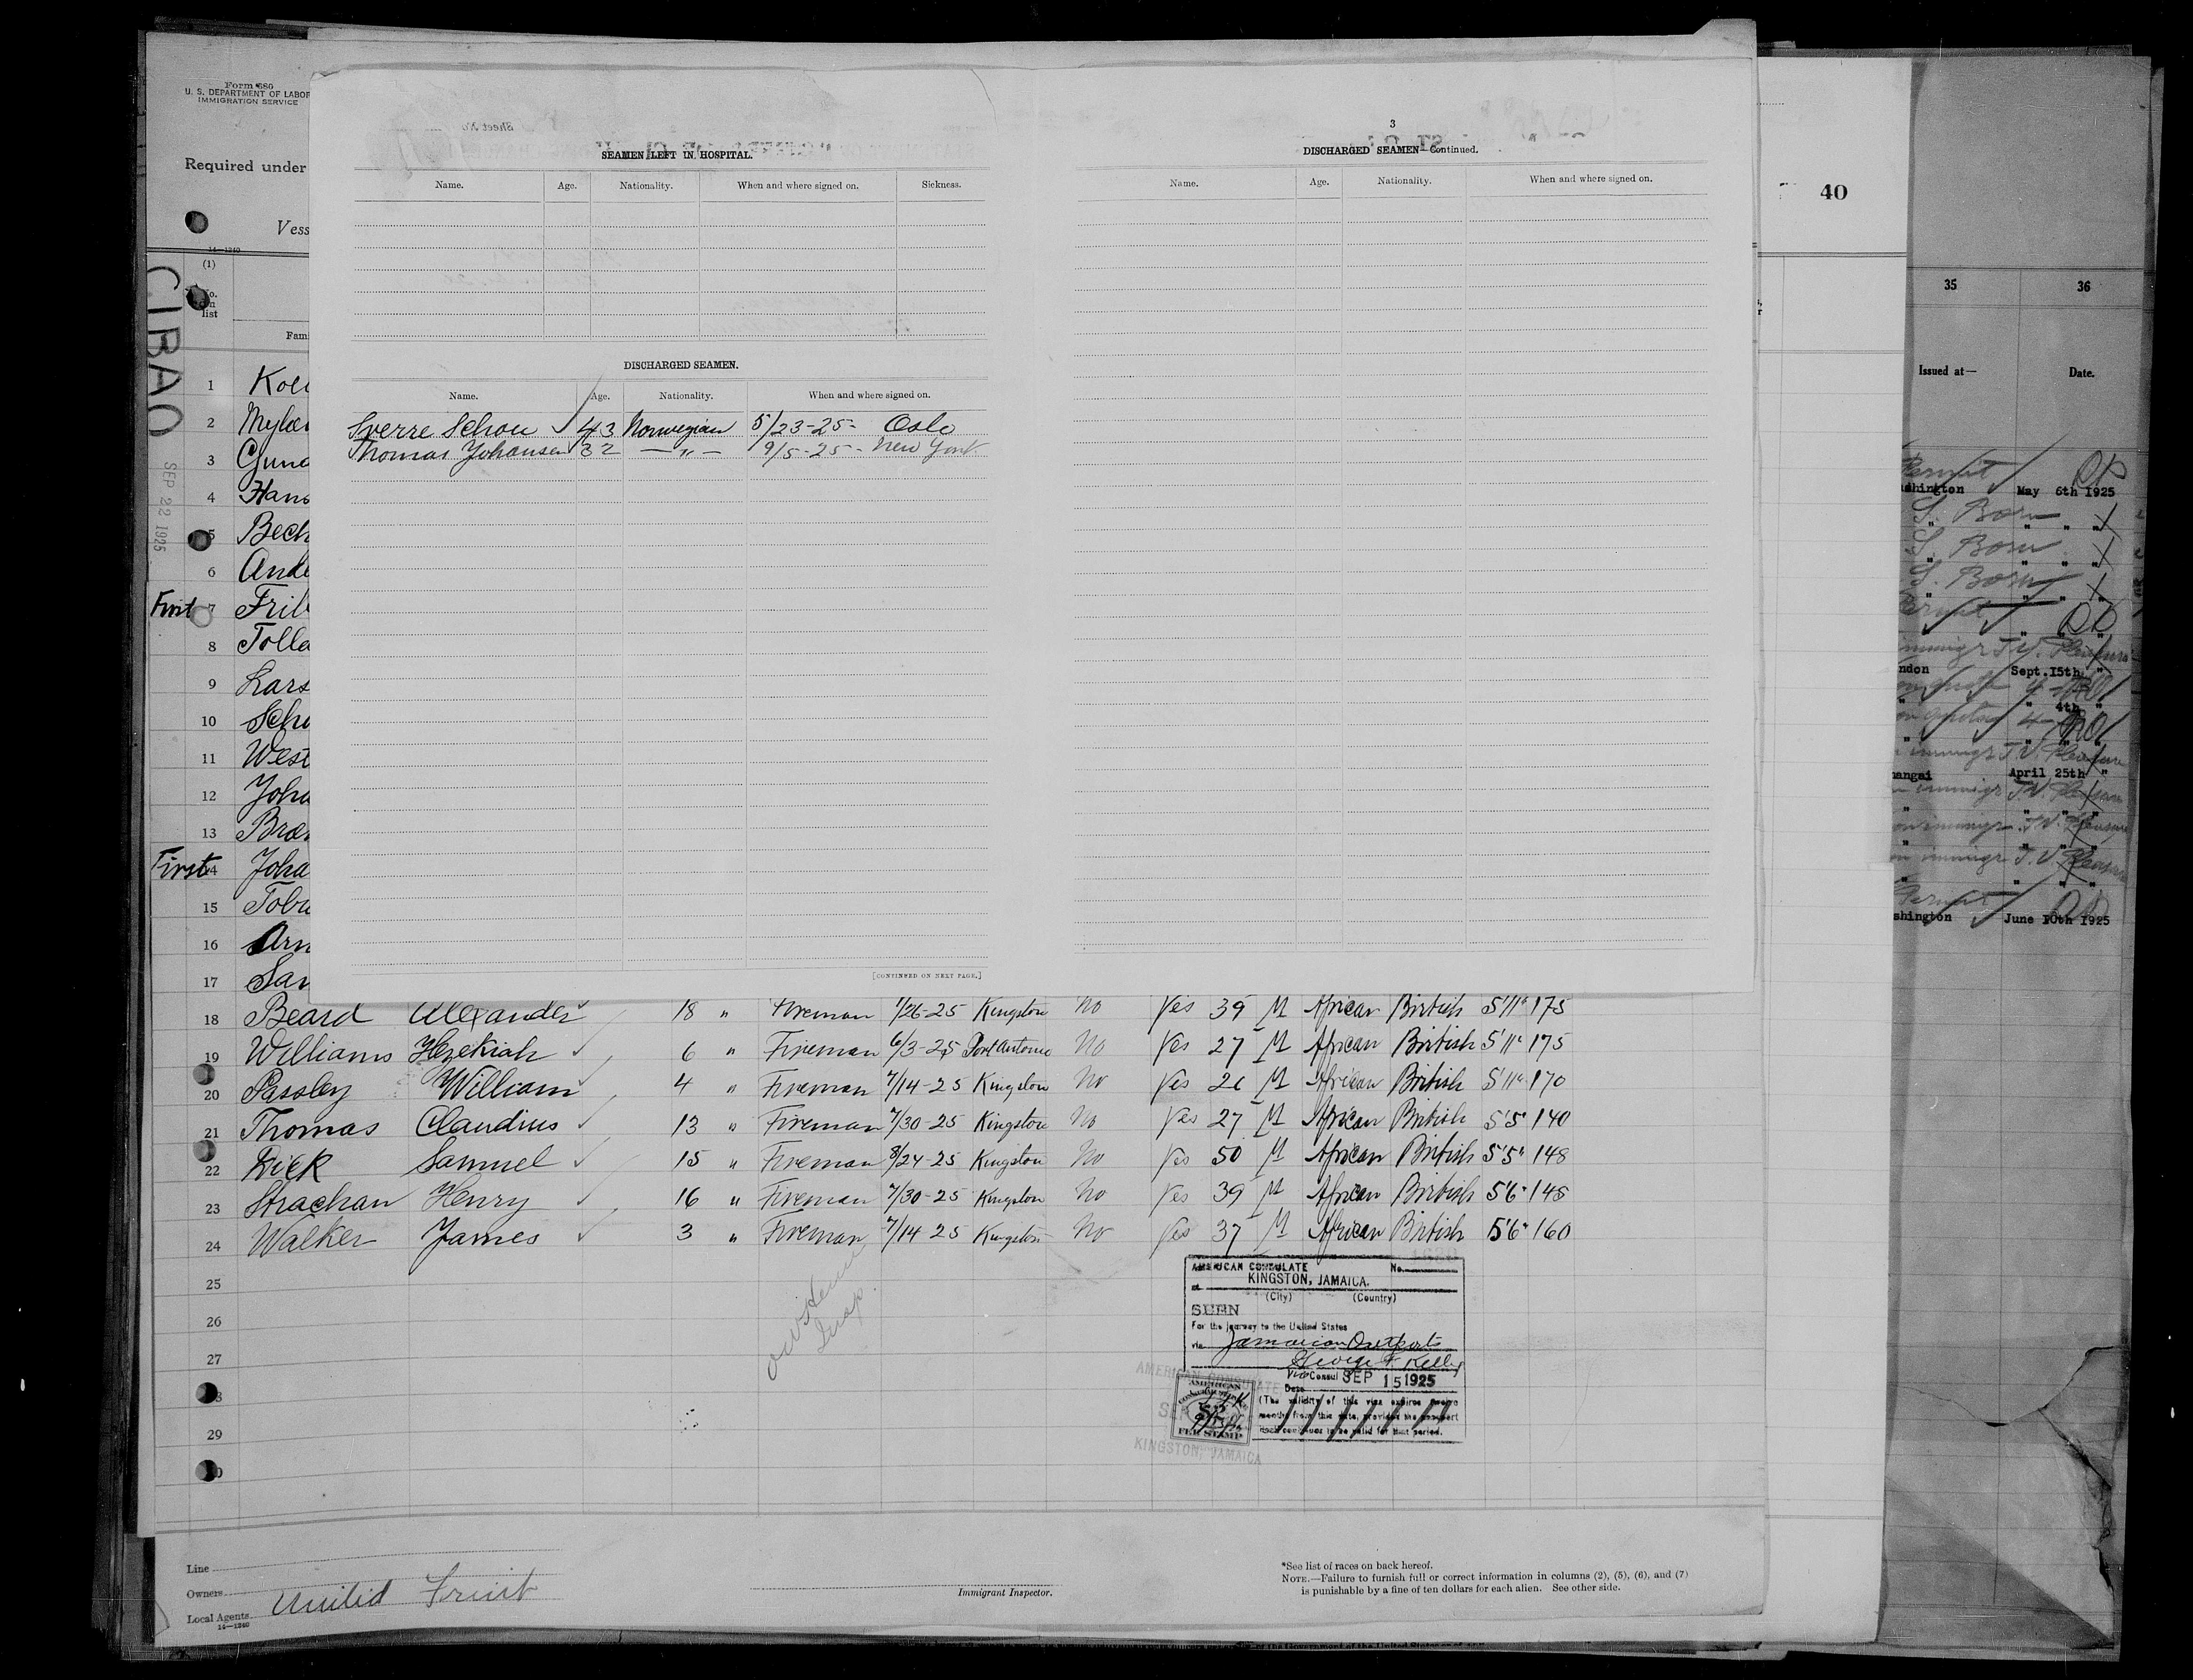 Form 680
U. S. DEPARTMENT OF LABOR
IMMIGRATION SERVICE
Required under
Vess
14—1240
(1)
No.
on
list
Fam
CIBAO
SEP 22 1925
Sheet No
SEAMEN LEFT IN HOSPITAL.
Name. Age. Nationality. When and where signed on. Sickness.
DISCHARGED SEAMEN.
Name. Age. Nationality. When and where signed on.
Sverre Schou 43 Norwegian 5/23-25- Oslo
Thomas Johansen 32 —"— 9/5-25- New York
[CONTINUED ON NEXT PAGE.]
3
DISCHARGED SEAMEN—Continued.
Name. Age. Nationality. When and where signed on.
40
35 36
Issued at— Date.
Permit
shington May 6th 1925
S. Born
" " " "
S. Born
" " " "
S. Born
" " " "
ndon Sept. 15th "
" 4th "
hangai April 25th "
Permit
shington June 10th 1925
1 Koe
2 Myla
3 Guna
4 Hans
5 Bech
6 Ande
First 7 Frib
8 Tolla
9 Lars
10 Scho
11 West
12 Joha
13 Bra
First 14 Joha
15 Tobi
16 Arn
17 Sam
18 Beard Alexander 18 " Fireman 1/26-25 Kingston No Yes 39 M African British 5'11" 175
19 Williams Hezekiah 6 " Fireman 6/3-25 Port Antonio No Yes 27 M African British 5'11" 175
20 Passley William 4 " Fireman 7/14-25 Kingston No Yes 26 M African British 5'11" 170
21 Thomas Claudius 13 " Fireman 7/30-25 Kingston No Yes 27 M African British 5'5" 140
22 Dick Samuel 15 " Fireman 8/24-25 Kingston No Yes 50 M African British 5'5" 148
23 Strachan Henry 16 " Fireman 7/30-25 Kingston No Yes 39 M African British 5'6" 145
24 Walker James 3 " Fireman 7/14 25 Kingston No Yes 37 M African British 5'6" 160
25
26
27
28
29
30
AMERICAN CONSULATE No.
at KINGSTON, JAMAICA.
(City) (Country)
SEEN
For the journey to the United States
via Jamaican Outport
George F. Kelly
Vice Consul SEP 15 1925
Date
(The validity of this visa expires twelve
months from this date, provided the passport
itself continues to be valid for that period.
AMERICAN CONSULATE
KINGSTON, JAMAICA
AMERICAN
FEE STAMP
Line
Owners
Local Agents United Fruit
14—1240
Immigrant Inspector.
*See list of races on back hereof.
NOTE.—Failure to furnish full or correct information in columns (2), (5), (6), and (7)
is punishable by a fine of ten dollars for each alien. See other side.